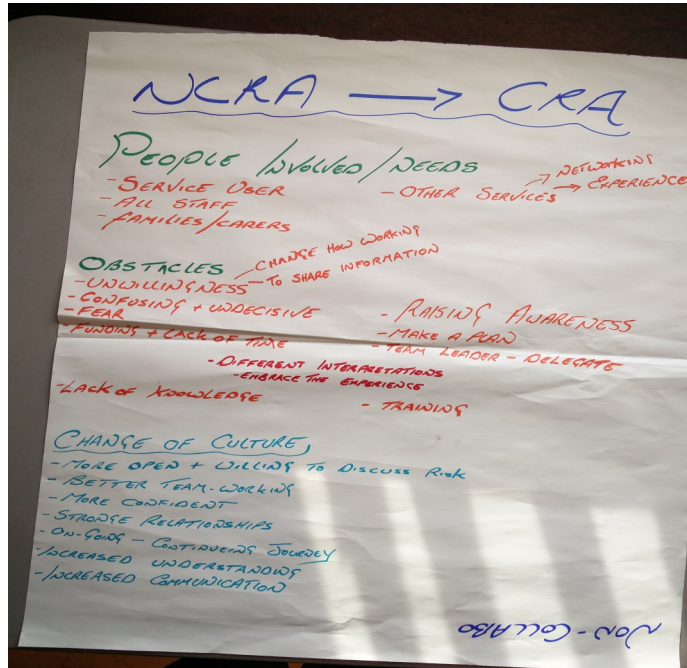 NCRA → CRA
PEOPLE INVOLVED/NEEDS
- SERVICE USER
- ALL STAFF
- FAMILIES/CARERS
- OTHER SERVICES → NETWORKING
→ EXPERIENCE
OBSTACLES
- UNWILLINGNESS - CHANGE HOW WORKING
- TO SHARE INFORMATION
- CONFUSING + UNDECISIVE
- FEAR
- FUNDING + LACK OF TIME
- RAISING AWARENESS
- MAKE A PLAN
- TEAM LEADER - DELEGATE
- DIFFERENT INTERPRETATIONS
- EMBRACE THE EXPERIENCE
- LACK OF KNOWLEDGE
- TRAINING
CHANGE OF CULTURE,
- MORE OPEN + WILLING TO DISCUSS RISK
- BETTER TEAM-WORKING
- MORE CONFIDENT
- STRONGE RELATIONSHIPS
- ON-GOING - CONTINUEING JOURNEY
- INCREASED UNDERSTANDING
- INCREASED COMMUNICATION
NON-COLLABO